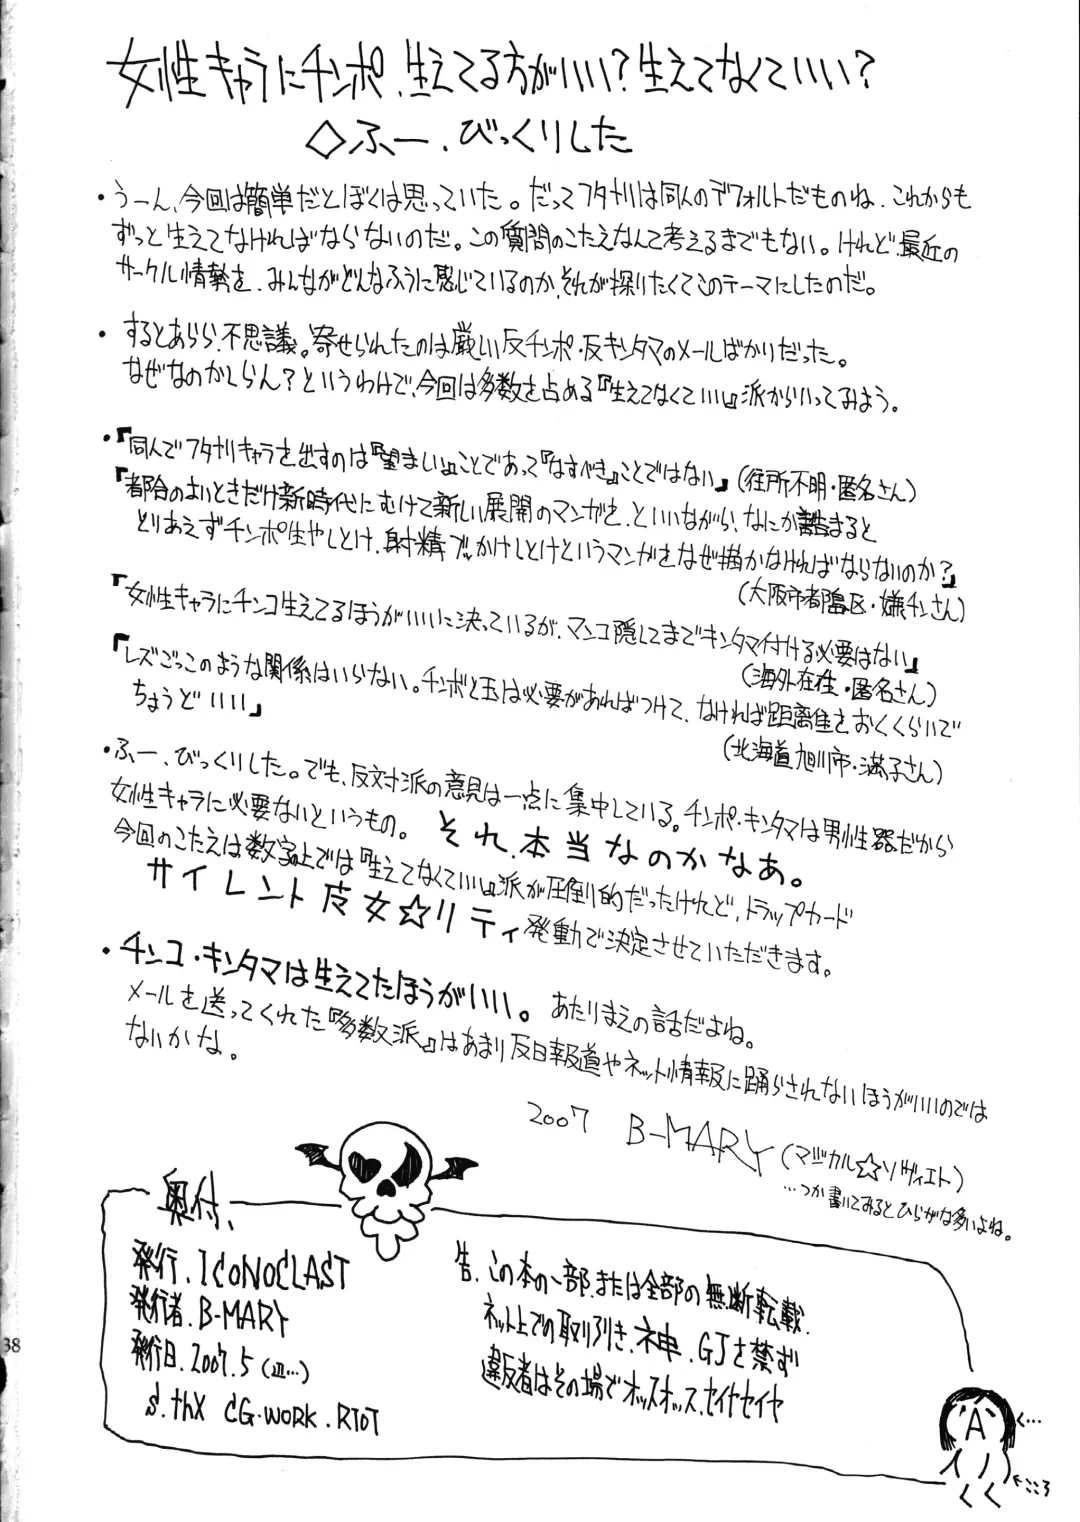 女性キャラにチンポ、生えてる方がいい?生えてなくていい?
◇ふー、びっくりした
・うーん、今回は簡単だとぼくは思っていた。だってフタナリは同人のデフォルトだものね、これからも
ずっと生えてなければならないのだ。この質問のこたえなんて考えるまでもない。けれど、最近の
サークル情勢を、みんながどんなふうに感じているのか、それが探りたくてこのテーマにしたのだ。
・するとあらら、不思議。寄せられたのは厳しい反チンポ・反キンタマのメールばかりだった。
なぜなのかしらん?というわけで、今回は多数を占める『生えてなくていい』派からいってみよう。
・『同人でフタナリキャラを出すのは『望ましい』ことであって『なすべき』ことではない』(住所不明・匿名さん)
『都合のよいときだけ新時代にむけて新しい展開のマンガを、といいながら、なにか詰まると
とりあえずチンポ生やしとけ、射精ブッかけしとけというマンガをなぜ描かなければならないのか?』
(大阪市都島区・嫌チンさん)
『女性キャラにチンコ生えてるほうがいいに決っているが、マンコ隠してまでキンタマ付ける必要はない』
(海外在住・匿名さん)
『レズごっこのような関係はいらない。チンポと玉は必要があればつけて、なければ距離をおくくらいで
ちょうどいい』
(北海道旭川市・満子さん)
・ふー、びっくりした。でも、反対派の意見は一点に集中している。チンポ・キンタマは男性器だから
女性キャラに必要ないというもの。それ、本当なのかなあ。
今回のこたえは数字上では『生えてなくていい』派が圧倒的だったけれど、トラップカード
サイレント魔女☆リティ発動で決定させていただきます。
・チンコ・キンタマは生えてたほうがいい。あたりまえの話だよね。
メールを送ってくれた『多数派』はあまり反日報道やネット情報に踊らされないほうがいいのでは
ないかな。
2007 B-MARY(マジカル☆ソヴィエト)
…つか書いてみるとひらがな多いよね。
奥付、
発行、ICONOCLAST
発行者、B-MARY
発行日、2007.5(皿…)
S.thX CG・WORK.RIOT
告、この本の一部、または全部の無断転載、
ネット上での取り引き、ネ申、GJを禁ず
違反者はその場でオッスオッス、セイヤセイヤ
A
く…
←こころ
38